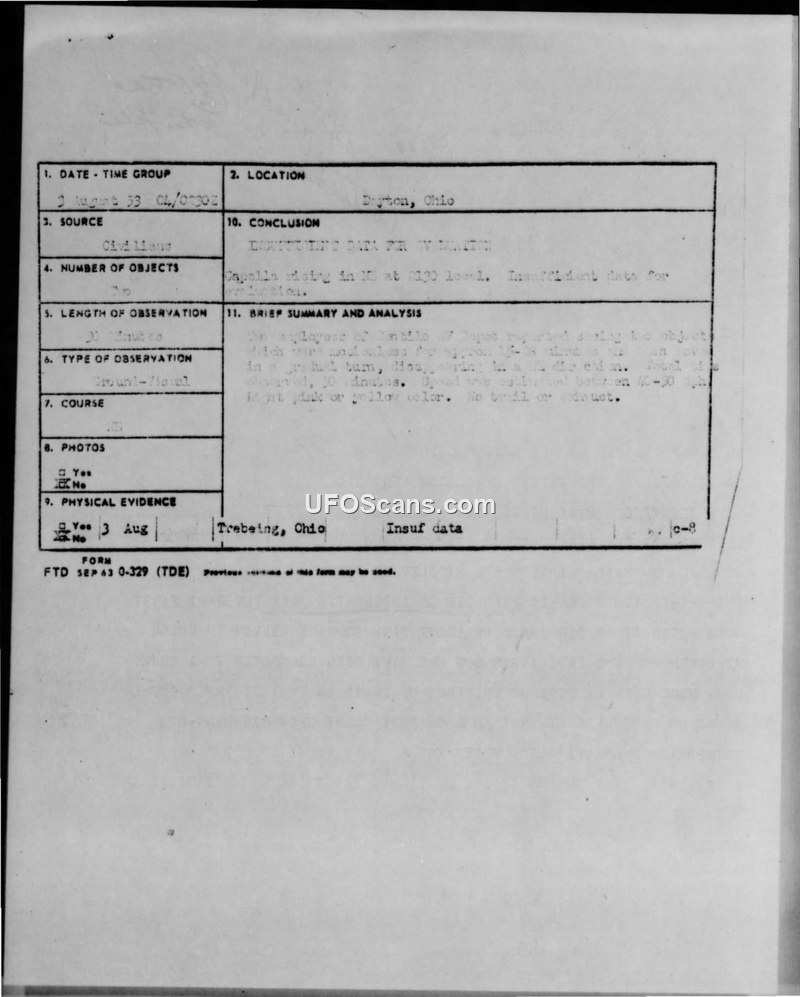 1. DATE - TIME GROUP
August 53 04/0230Z
2. LOCATION
Dayton, Ohio
3. SOURCE
Civilians
10. CONCLUSION
INSUFFICIENT DATA FOR EVALUATION
Capella rising in NE at 2130 local. Insufficient data for
evaluation.
4. NUMBER OF OBJECTS
Two
5. LENGTH OF OBSERVATION
30 minutes
11. BRIEF SUMMARY AND ANALYSIS
Two employees of Gentile AF Depot reported seeing two objects
which were motionless for approx minutes
in a gradual turn, disappearing in a direction. Total time
observed, 30 minutes. Speed was estimated between 40-50 mph.
Light pink or yellow color. No trail or exhaust.
6. TYPE OF OBSERVATION
Ground-Visual
7. COURSE
8. PHOTOS
□ Yes
No
9. PHYSICAL EVIDENCE
□ Yes
No
3 Aug Trebeing, Ohio Insuf data c-8
FORM
FTD SEP 63 0-329 (TDE) Previous editions of this form may be used.
UFOScans.com